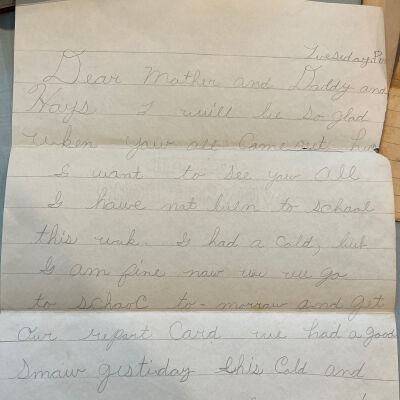 Tuesday Pm
Dear Mother and Daddy and
Hays I will be so glad
when yow all Come out her
I want to see yow all
I hawe not bien to school
this wek. I had a Cold, but
I am fine naw we we go
to school to-morraw and get
Our report Card we had a good
Smaw yestiday this Cold and